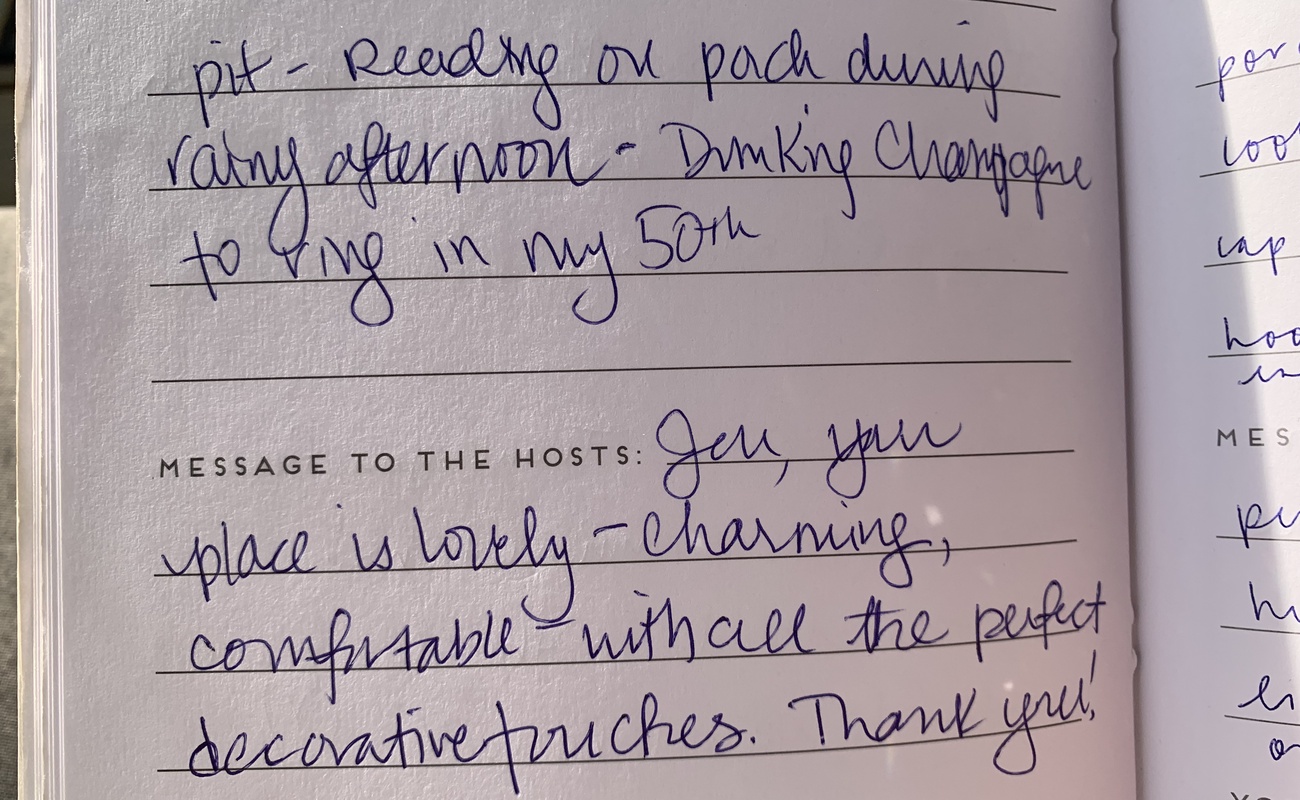 pit - Reading on poch during
rainy afternoon - Drinking Champagne
to ring in my 50th
MESSAGE TO THE HOSTS: Jen, your
place is lovely - charming,
comfortable - with all the perfect
decorative touches. Thank you!
por
loo
cap
hoo
in
MES
pe
h
en
o